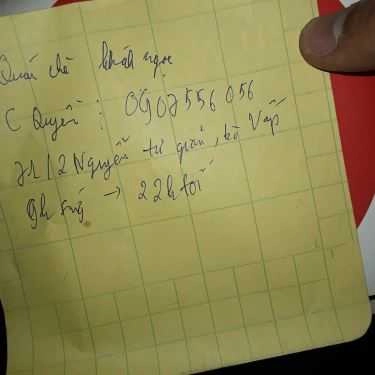 Quán chè khánh ngọc
C Quyên : 0907556056
71/2 Nguyễn tư giản, Gò Vấp
9h sáng → 22h tối